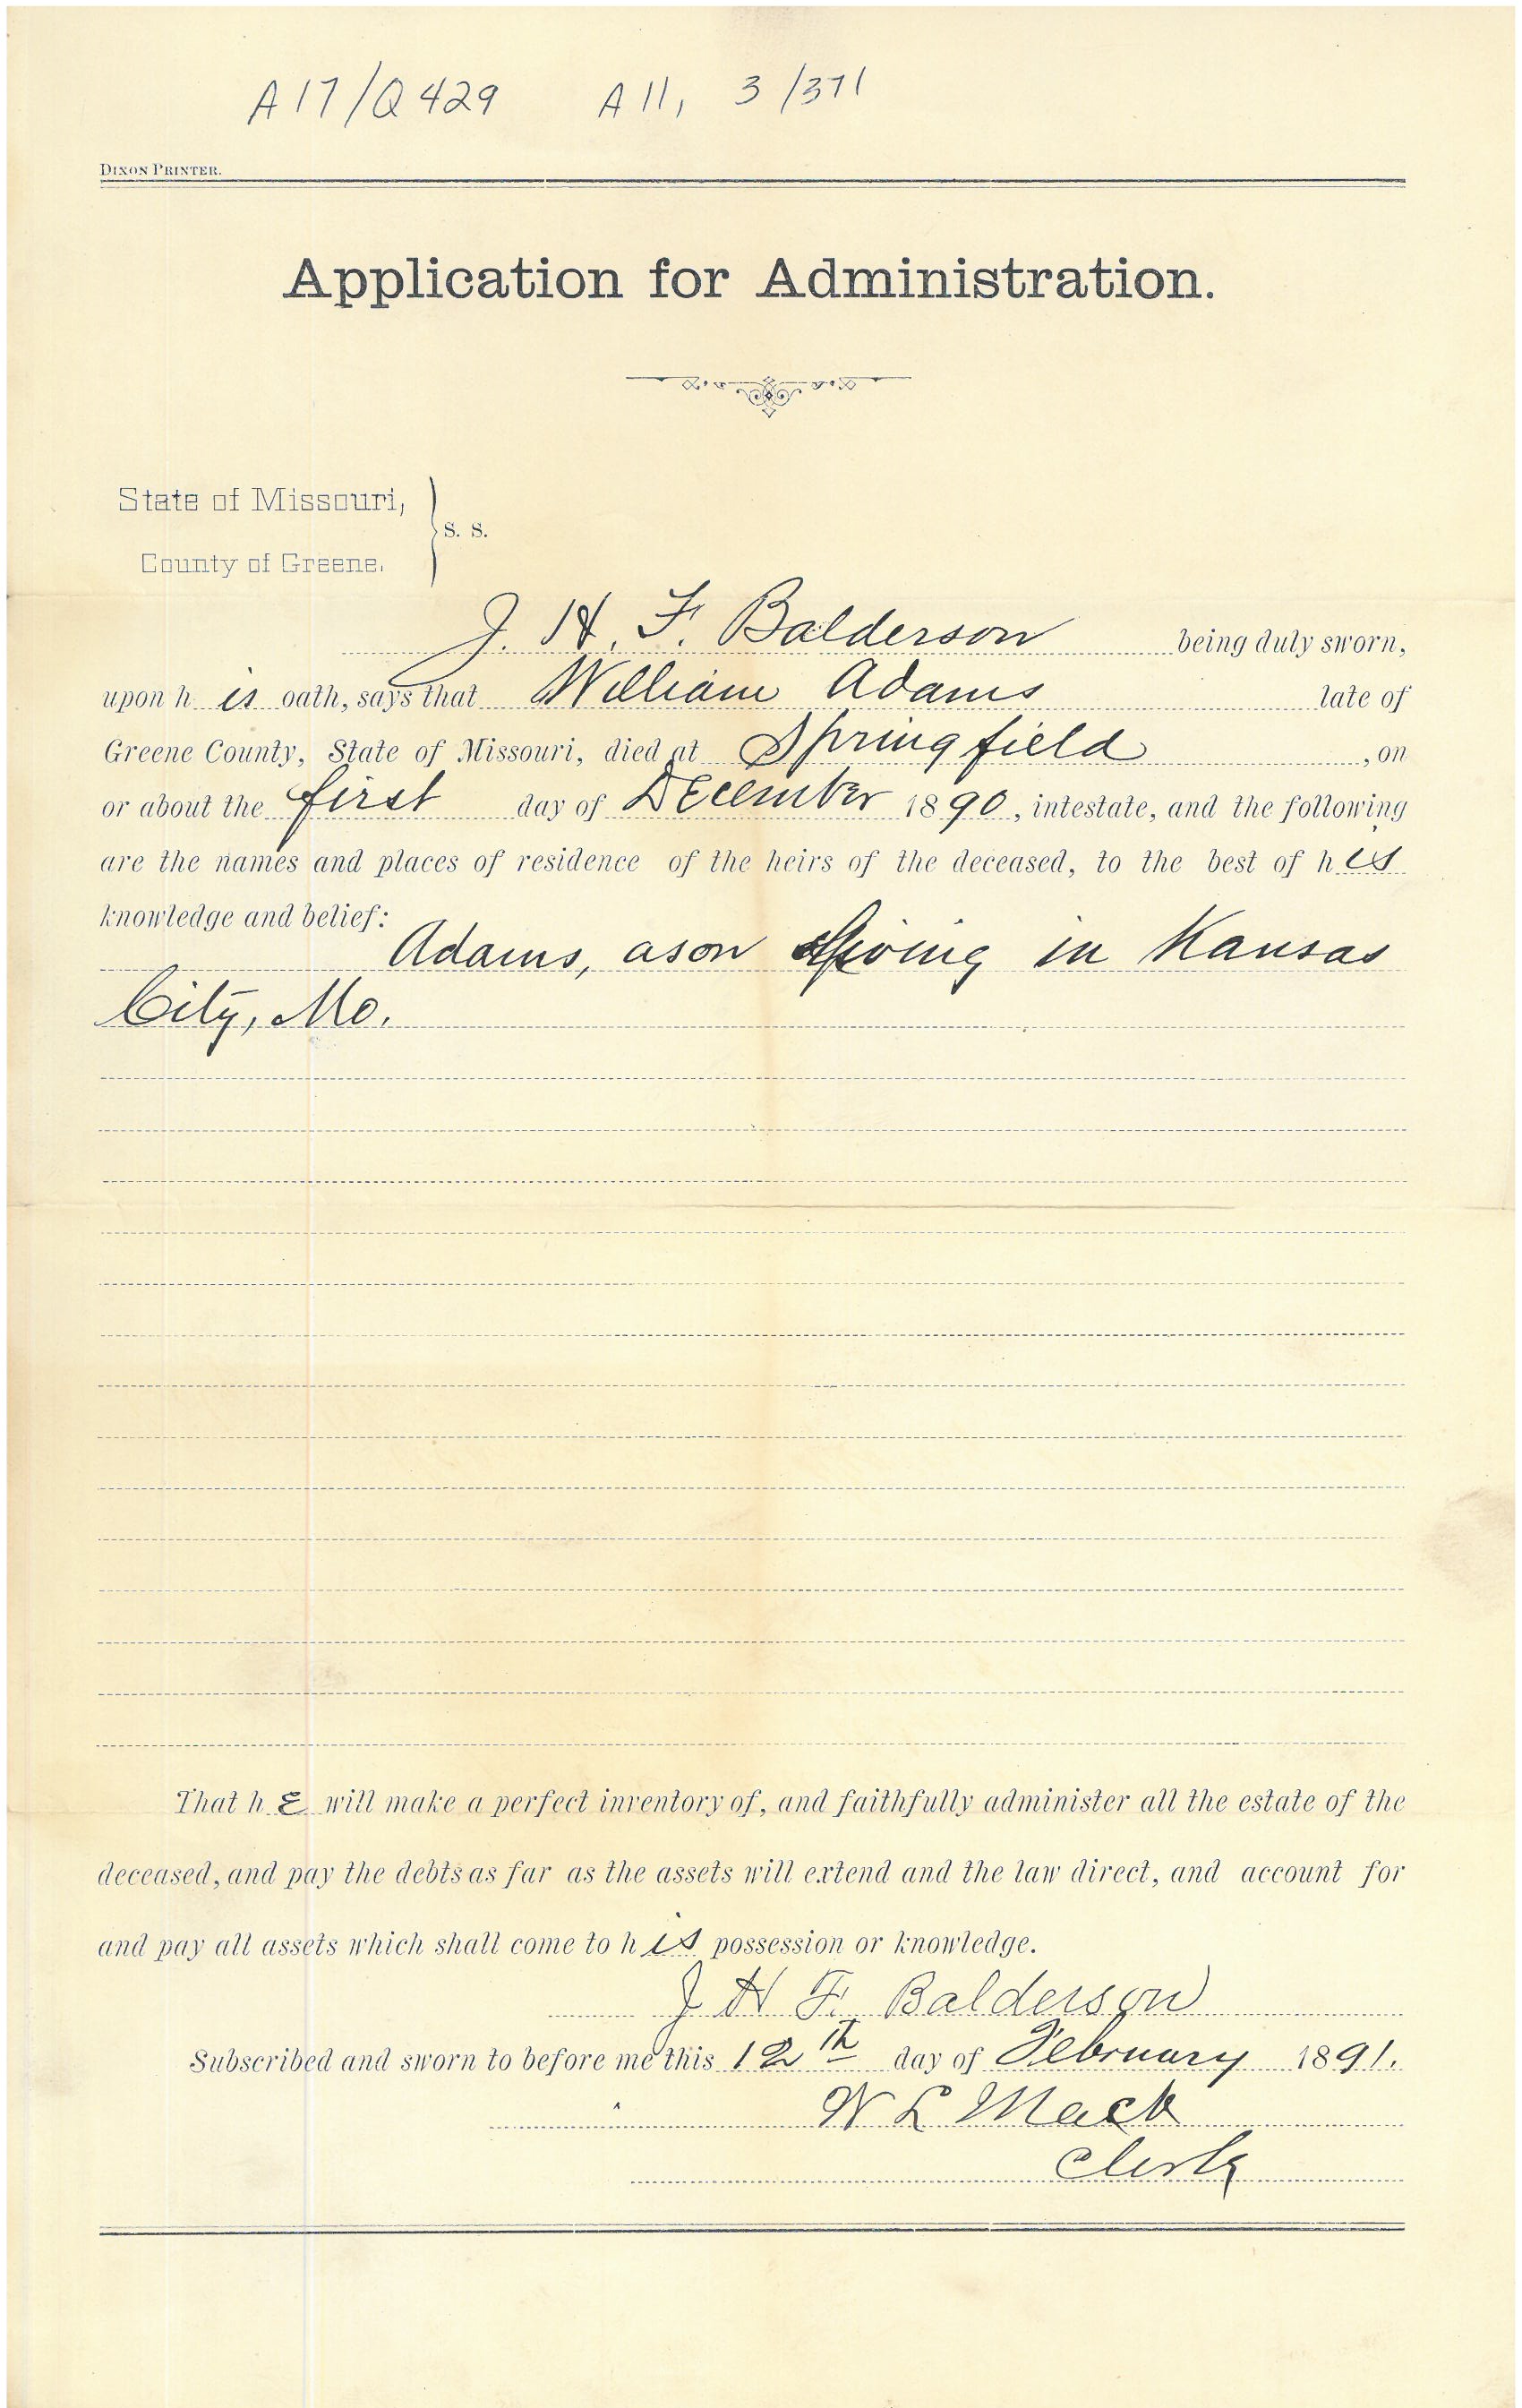 A17/Q429 A11, 3/371
DIXON PRINTER.
Application for Administration.
State of Missouri,
S. S.
County of Greene.
J. H. F. Balderson being duly sworn,
upon h is oath, says that William Adams late of
Greene County, State of Missouri, died at Springfield , on
or about the first day of December 1890, intestate, and the following
are the names and places of residence of the heirs of the deceased, to the best of h is
knowledge and belief:
Adams, a son living in Kansas
City, Mo.
That h e will make a perfect inventory of, and faithfully administer all the estate of the
deceased, and pay the debts as far as the assets will extend and the law direct, and account for
and pay all assets which shall come to h is possession or knowledge.
J H F. Balderson
Subscribed and sworn to before me this 12th day of February 1891.
W L Mack
Clerk